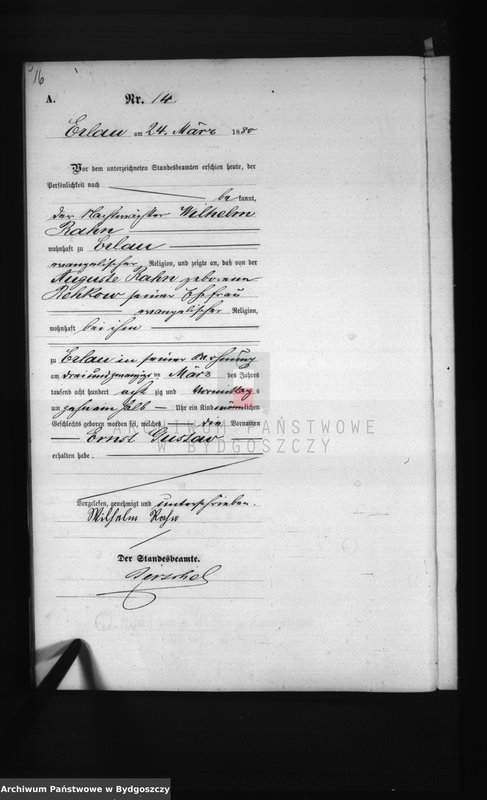 16
A. Nr. 14
Erlau am 24. März 1880
Vor dem unterzeichneten Standesbeamten erschien heute, der
Persönlichkeit nach
be kannt,
der Nachtwächter Wilhelm
Rahn
wohnhaft zu Erlau
evangelischer Religion, und zeigte an, daß von der
Auguste Rahn geborenen
seiner Ehefrau
evangelischer Religion,
wohnhaft bei ihm
zu Erlau in seiner Wohnung
am dreiundzwanzigsten März des Jahres
tausend acht hundert achtzig und Vormittags
um zehneinhalb Uhr ein Kind männlichen
Geschlechts geboren worden sei, welches die Vornamen
Ernst Gustav
erhalten habe.
Vorgelesen, genehmigt und unterschrieben.
Wilhelm Rahn
Der Standesbeamte.
ARCHIWUM PAŃSTWOWE
W BYDGOSZCZY
Archiwum Państwowe w Bydgoszczy